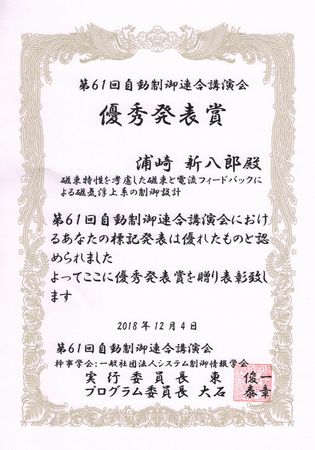 第61回自動制御連合講演会
優秀発表賞
浦崎 新八郎殿
磁束特性を考慮した磁束と電流フィードバックに
よる磁気浮上系の制御設計
第61回自動制御連合講演会におけ
るあなたの標記発表は優れたものと認
められました
よってここに優秀発表賞を贈り表彰致し
ます
2018年12月4日
第61回自動制御連合講演会
幹事学会:一般社団法人システム制御情報学会
実行委員長 東 俊一
プログラム委員長 大石 泰章